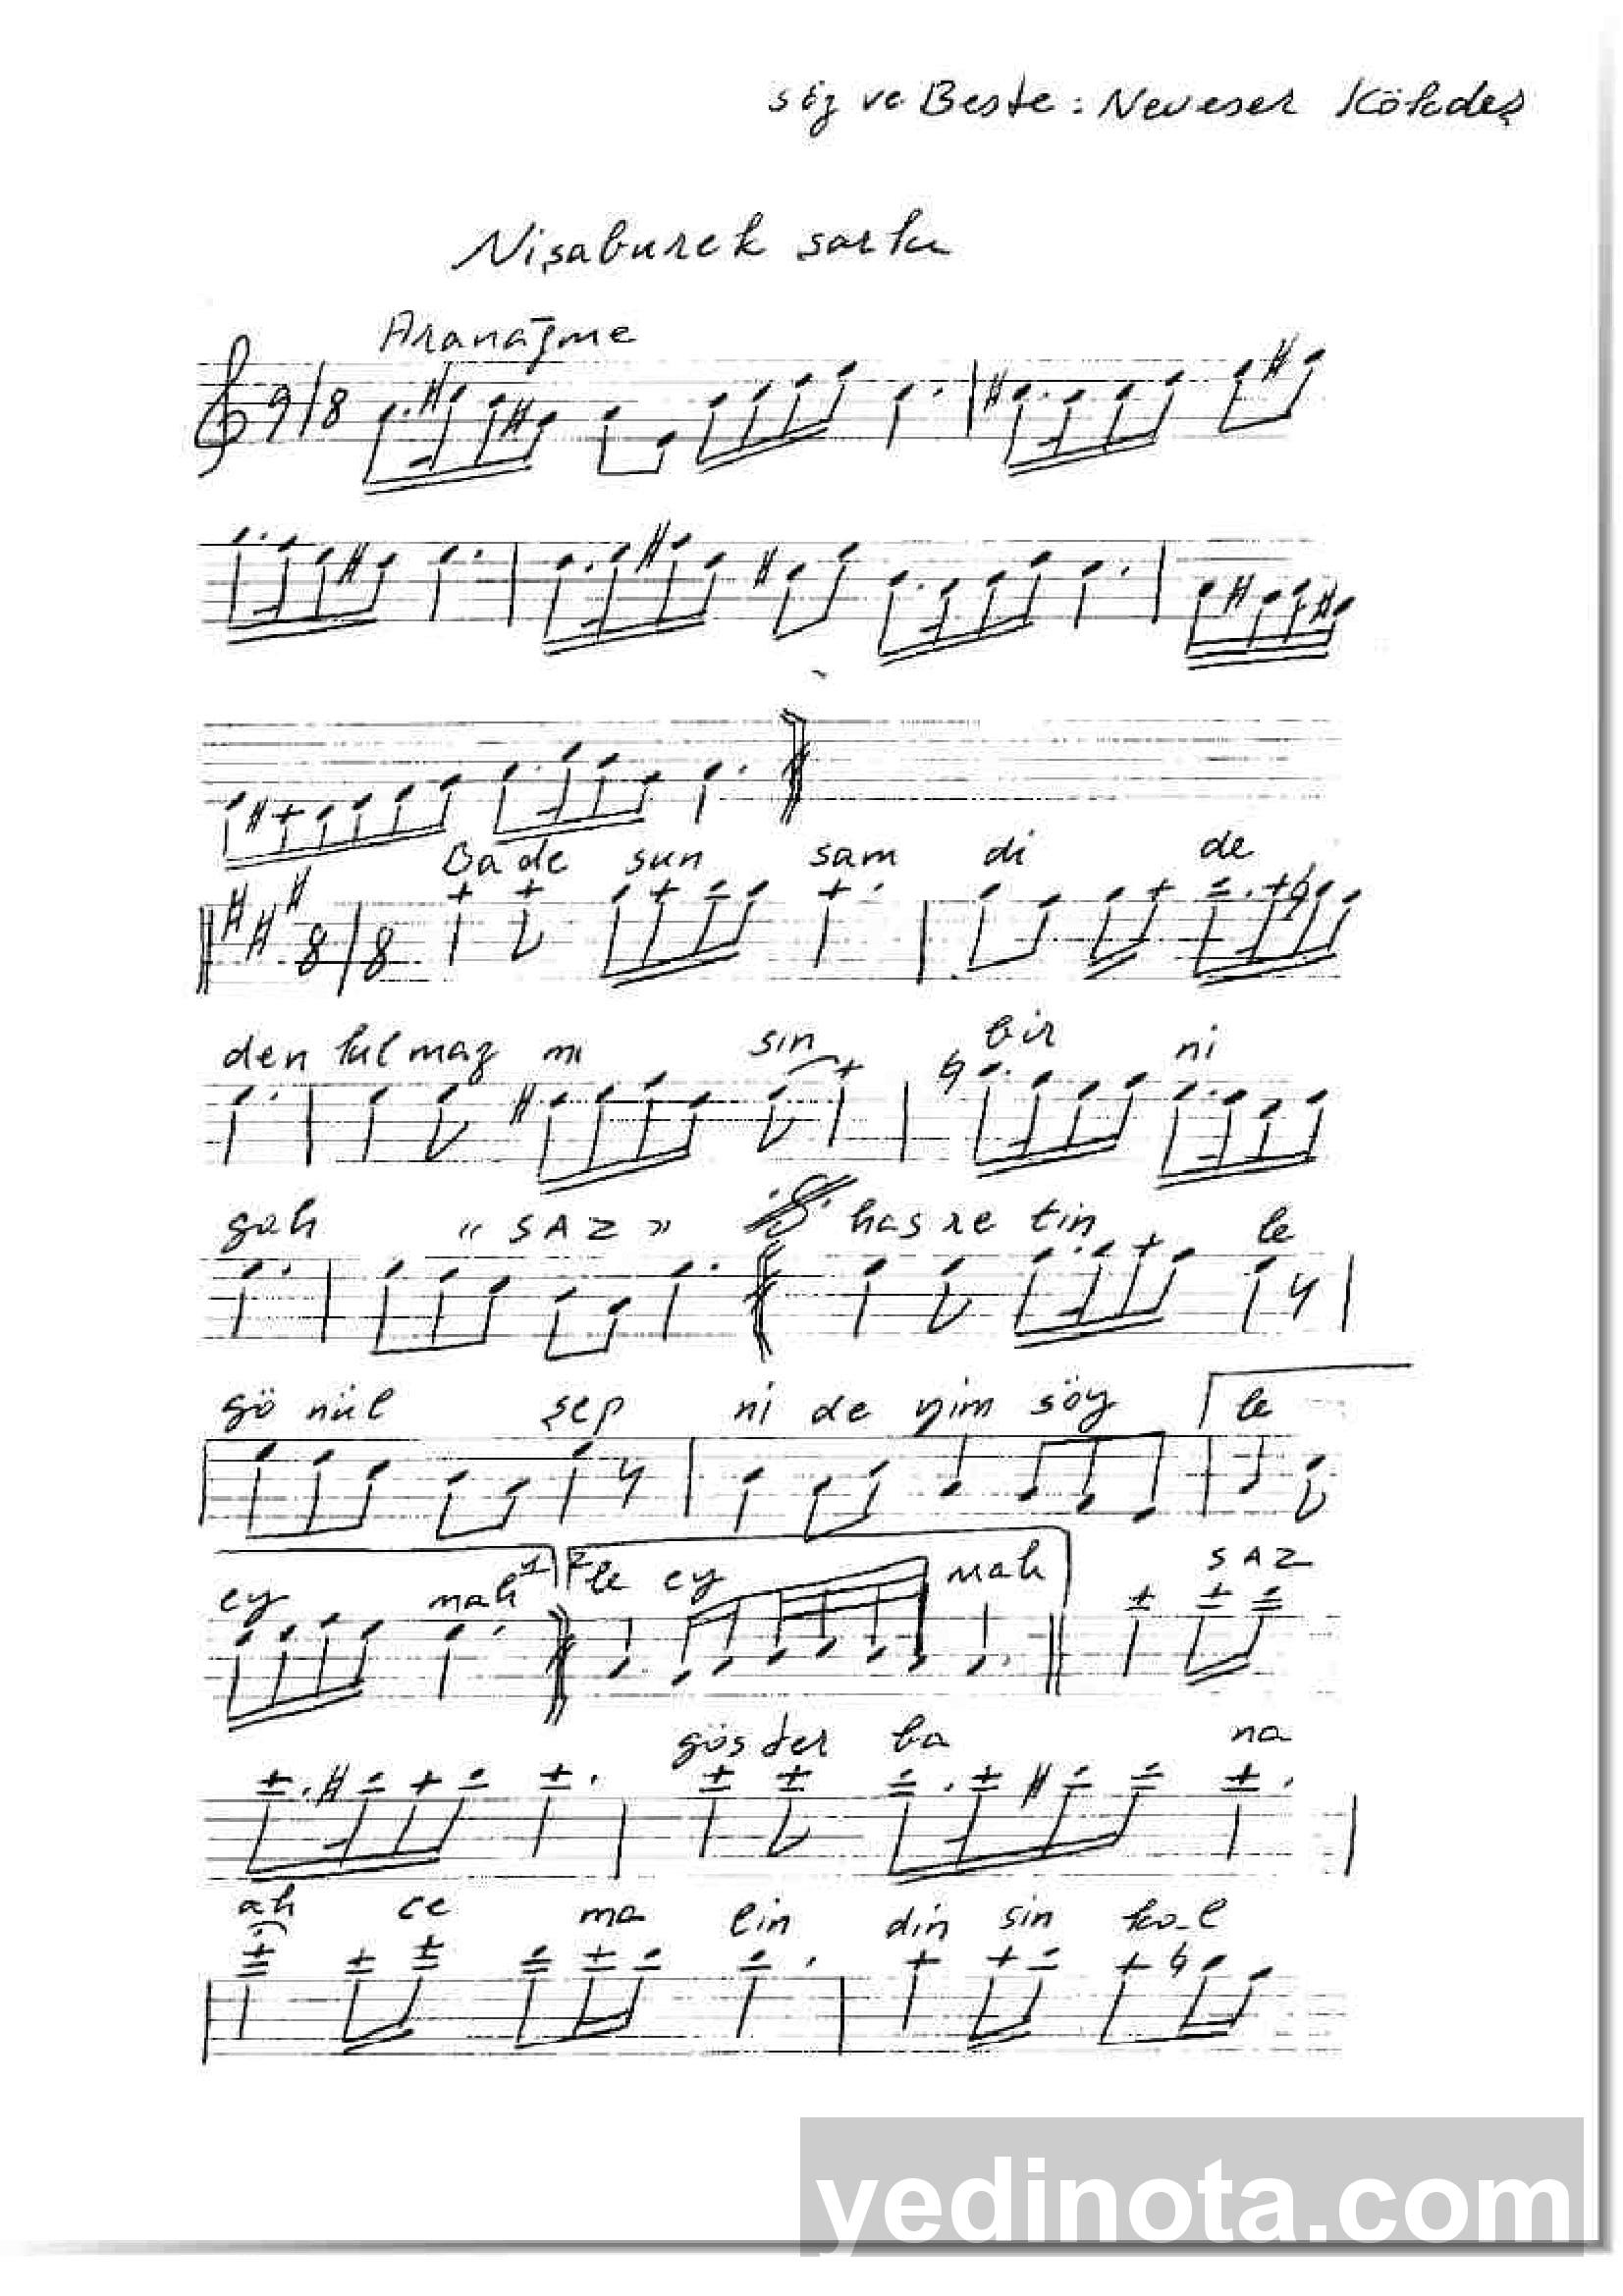 söz ve Beste: Neveser Kökdeş
Nişaburek şarkı
Aranağme
9/8
Bade sun sam di de
8/8
den kıl maz mı sın bir ni
gah "SAZ" has re tin le
gö nül şep ni de yim söy le
ey mah 1 2 le ey mah SAZ
gös ter ba na
ah ce ma lin din sin
yedinota.com